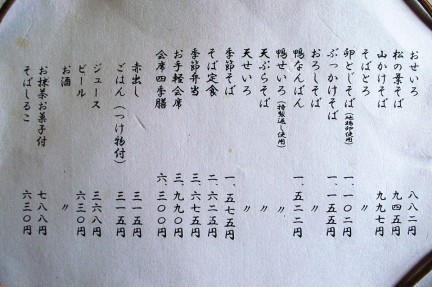 おせいろ 八八二円
松の景そば 九四五円
山かけそば 九九七円
そばとろ 〃
卵とじそば 一、一〇二円
ぶっかけそば 一、一五五円
おろしそば 〃
鴨なんばん 一、五二二円
鴨せいろ(特製返し使用) 〃
天ぷらそば 〃
天せいろ 〃
季節そば 一、五七五円
そば定食 二、六二五円
季節弁当 三、六七五円
お手軽会席 三、九九〇円
会席四季膳 六、三〇〇円
赤出し 三一五円
ごはん(つけ物付) 三一五円
ジュース 三六八円
ビール 六三〇円
お酒 〃
お抹茶お菓子付 七八八円
そばしるこ 六三〇円